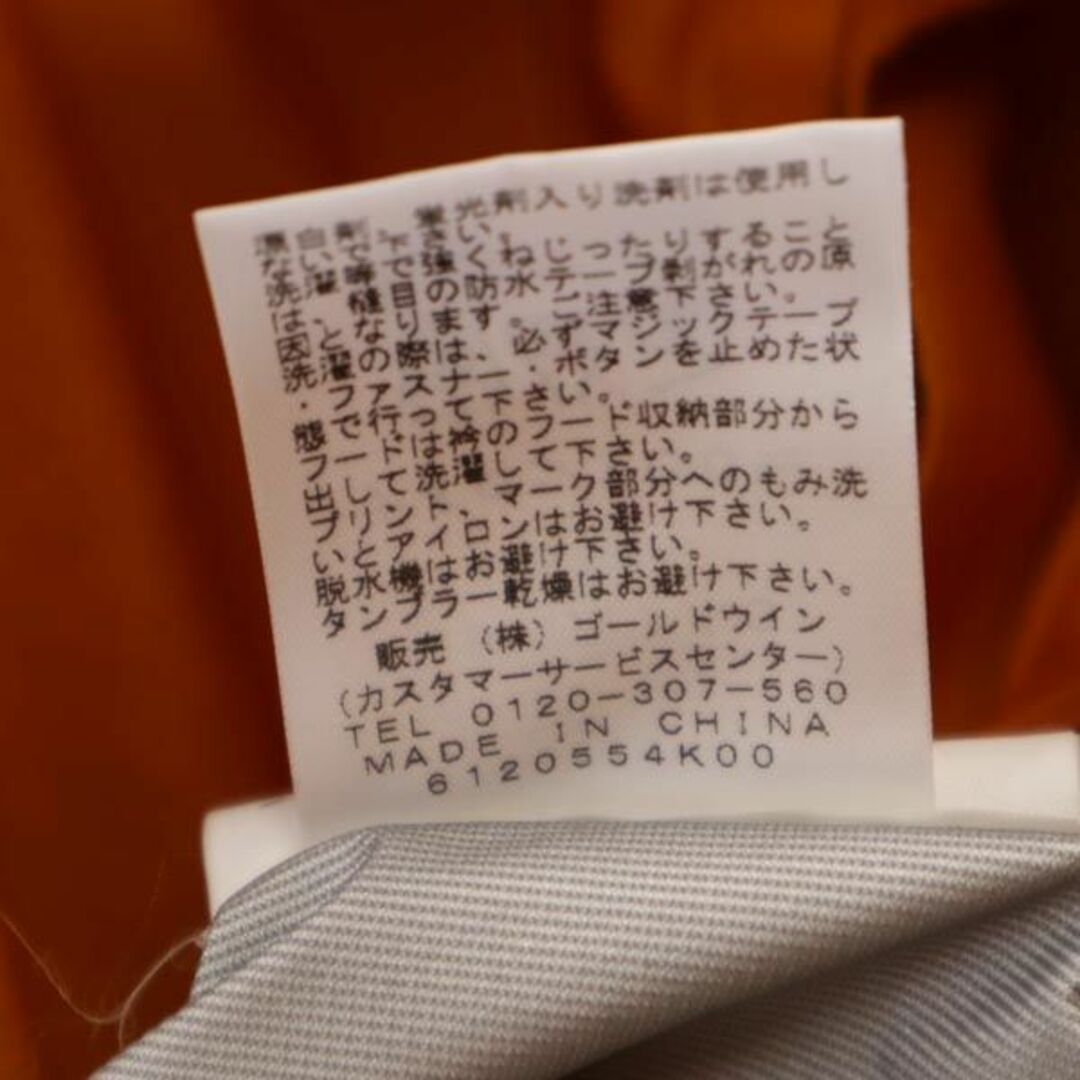 漂白剤、蛍光剤入り洗剤は使用し
ないで下さい。
洗濯時、強くねじったりすること
は縫目の防水テープ剥がれの原
因となります。ご注意下さい。
洗濯の際は、必ずマジックテープ
・ファスナー・ボタンを止めた状
態で行って下さい。
フードは衿のフード収納部分から
出して洗濯して下さい。
プリント、マーク部分へのもみ洗
いとアイロンはお避け下さい。
脱水機はお避け下さい。
タンブラー乾燥はお避け下さい。
販売 (株) ゴールドウイン
(カスタマーサービスセンター)
TEL 0120-307-560
MADE IN CHINA
6120554K00